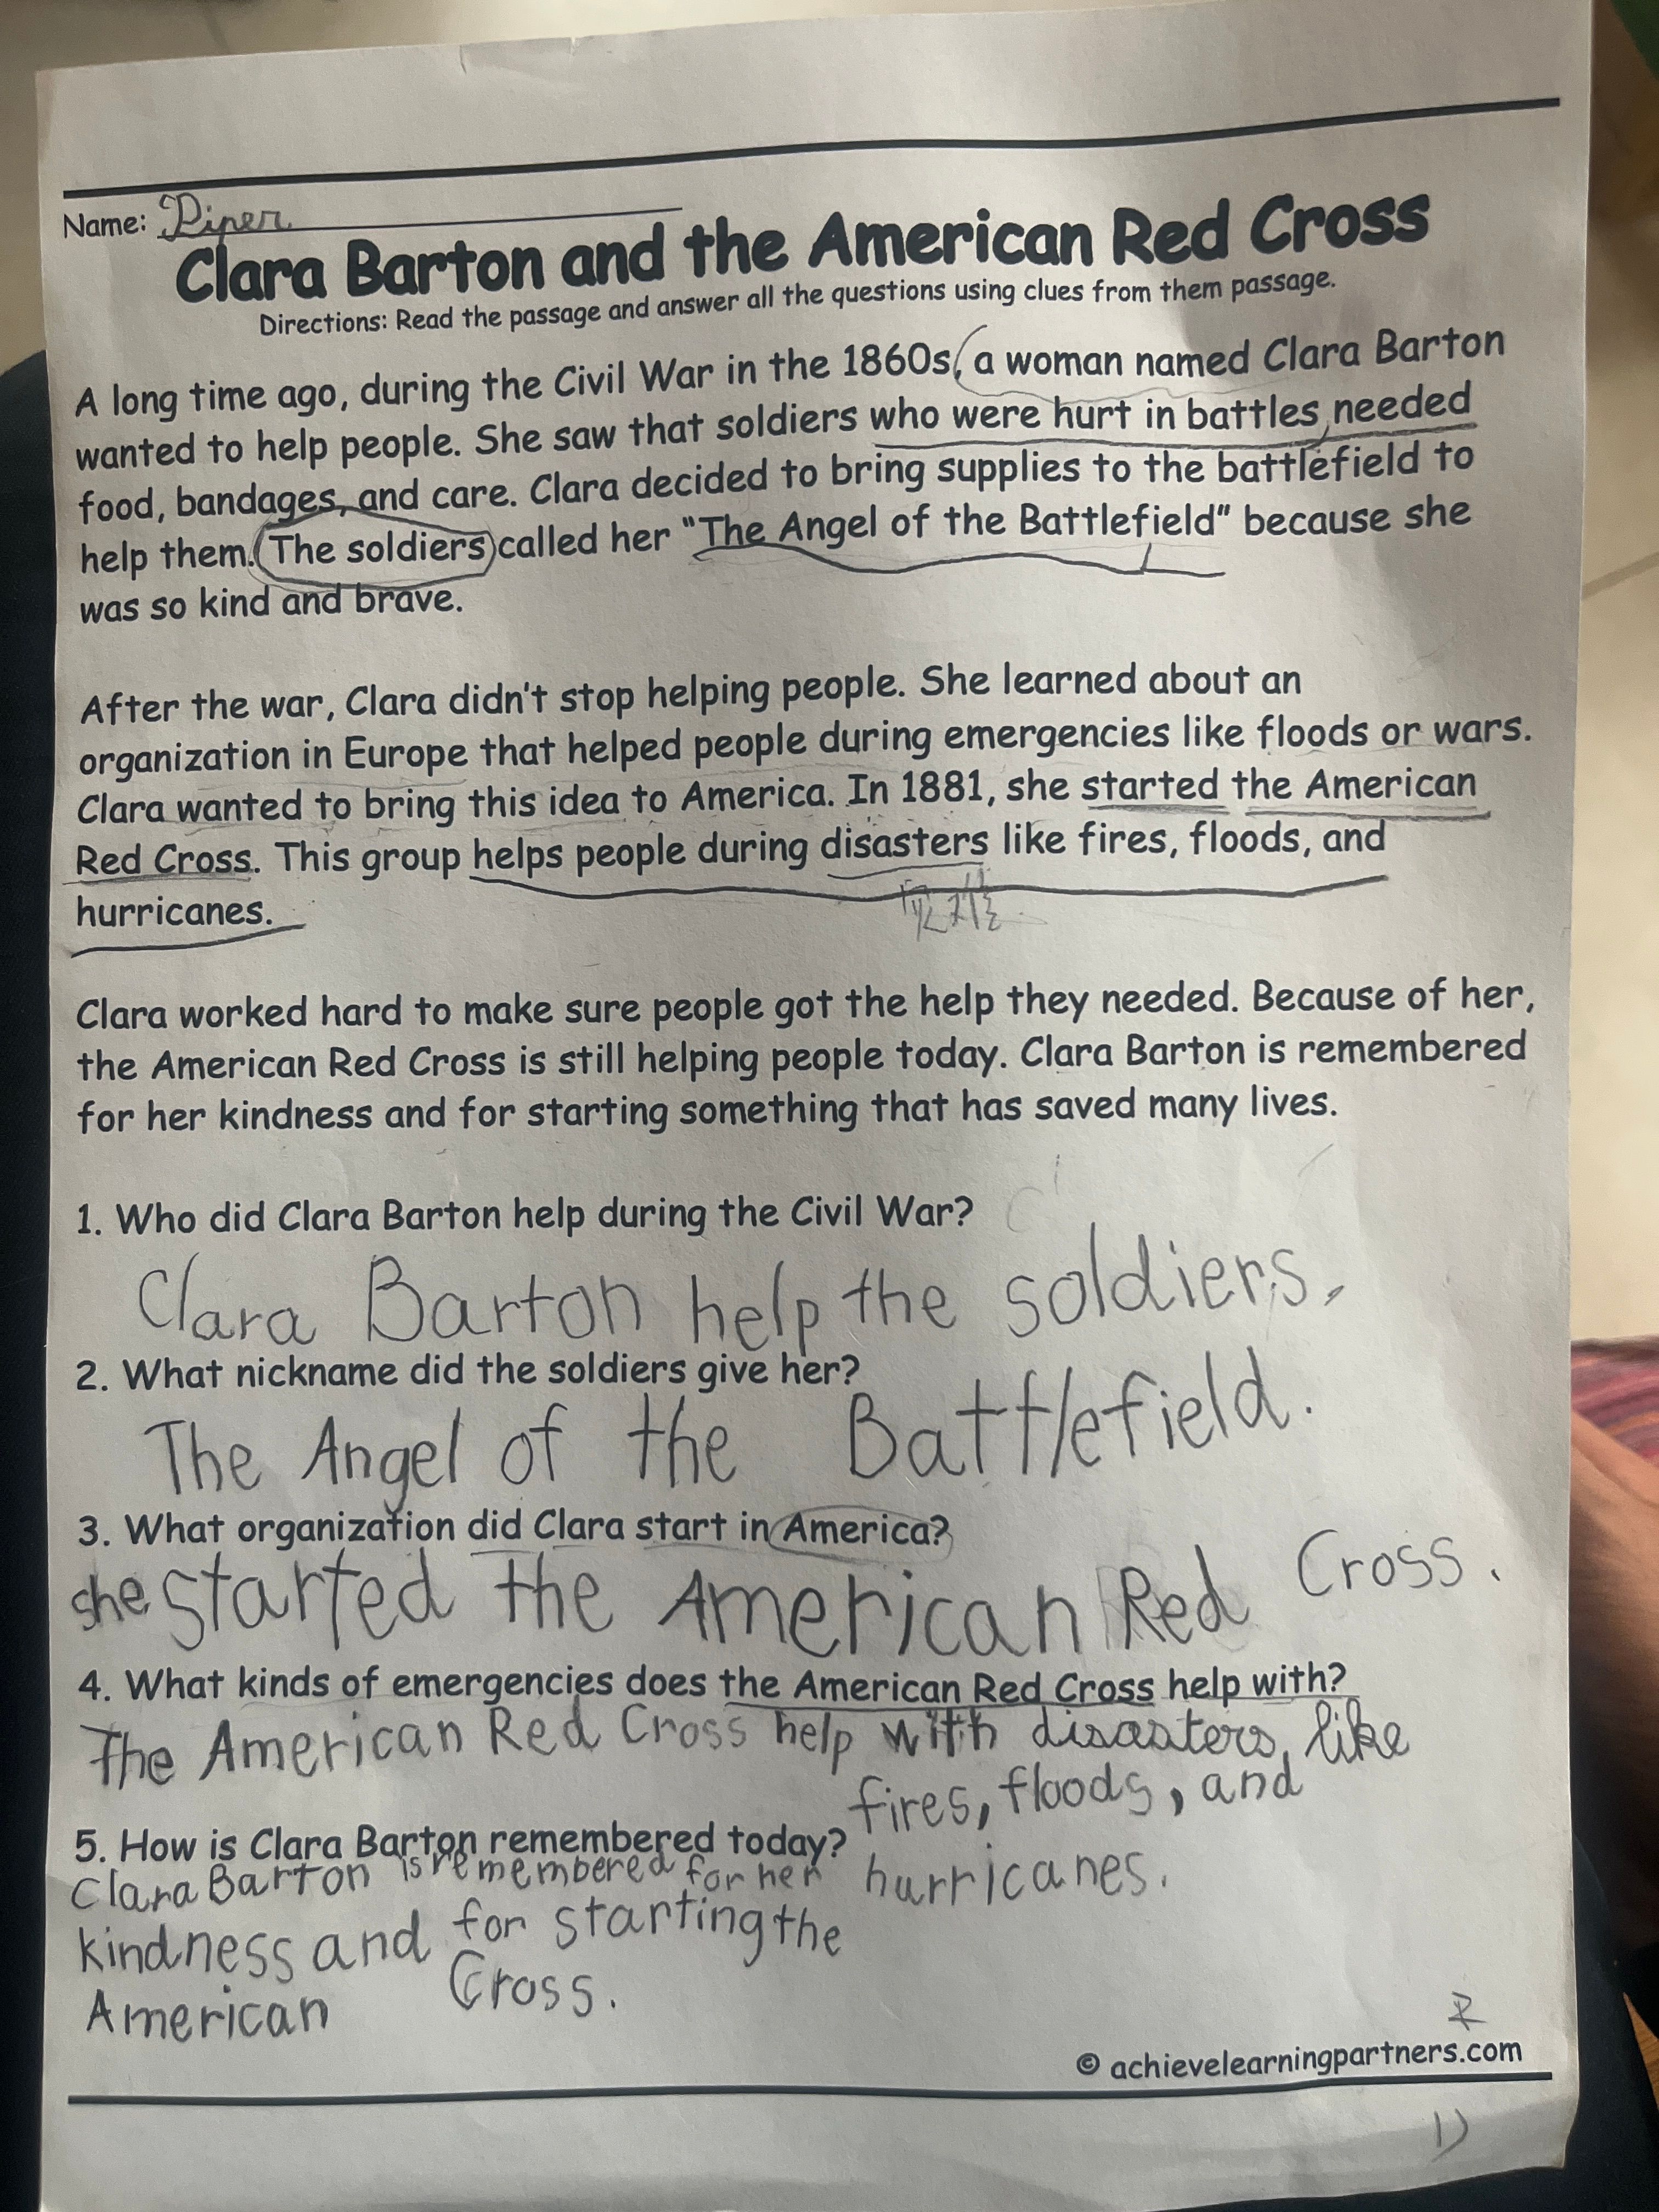 Name: Piper
Clara Barton and the American Red Cross
Directions: Read the passage and answer all the questions using clues from them passage.
A long time ago, during the Civil War in the 1860s, a woman named Clara Barton
wanted to help people. She saw that soldiers who were hurt in battles needed
food, bandages, and care. Clara decided to bring supplies to the battlefield to
help them. The soldiers called her "The Angel of the Battlefield" because she
was so kind and brave.
After the war, Clara didn't stop helping people. She learned about an
organization in Europe that helped people during emergencies like floods or wars.
Clara wanted to bring this idea to America. In 1881, she started the American
Red Cross. This group helps people during disasters like fires, floods, and
hurricanes.
Clara worked hard to make sure people got the help they needed. Because of her,
the American Red Cross is still helping people today. Clara Barton is remembered
for her kindness and for starting something that has saved many lives.
1. Who did Clara Barton help during the Civil War?
Clara Barton help the soldiers.
2. What nickname did the soldiers give her?
The Angel of the Battlefield.
3. What organization did Clara start in America?
she started the American Red Cross.
4. What kinds of emergencies does the American Red Cross help with?
The American Red Cross help with disasters, like
fires, floods, and
hurricanes.
5. How is Clara Barton remembered today?
Clara Barton is remembered for her
kindness and for starting the
American Cross.
© achievelearningpartners.com